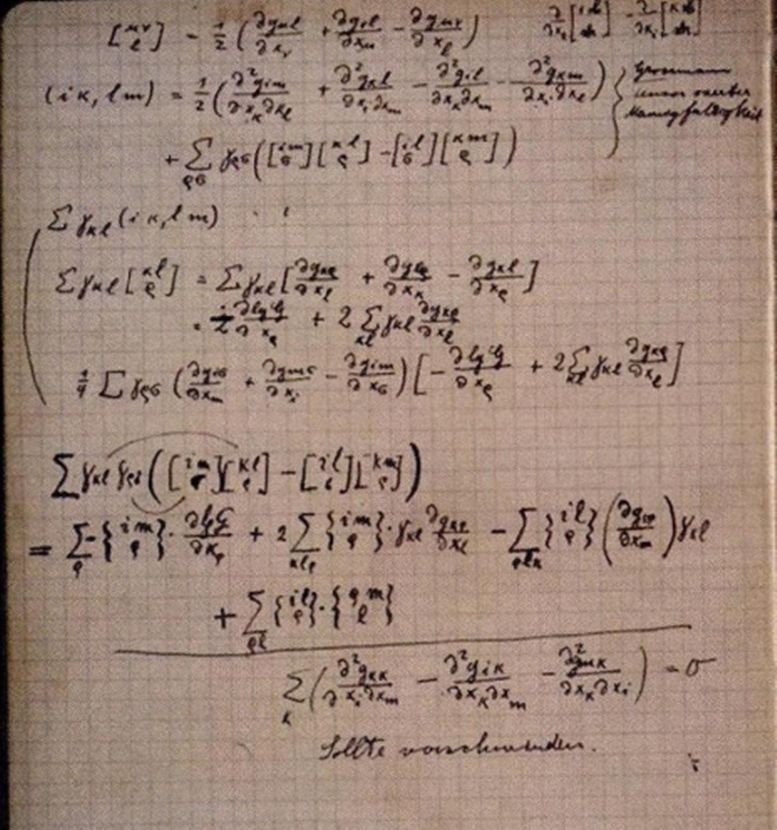 [μν l] = 1/2 (∂gμl/∂xν + ∂gνl/∂xμ − ∂gμν/∂xl)
(iκ, lm) = 1/2 (∂²gim/∂xκ∂xl + ∂²gκl/∂xi∂xm − ∂²gil/∂xκ∂xm − ∂²gκm/∂xi∂xl) } Grossmann
Tensor vierter
Mannigfaltigkeit
+ Σρσ γρσ ([im σ][κl ρ] − [il σ][κm ρ])
Σ γκl (iκ, lm)
Σ γκl [κl ρ] = Σ γκl [∂gκρ/∂xl + ∂glρ/∂xκ − ∂gκl/∂xρ]
= ∂lgG/∂xρ + 2 Σκl γκl ∂gκρ/∂xl
1/4 Σ γρσ (∂giσ/∂xm + ∂gmσ/∂xi − ∂gim/∂xσ) [− ∂lgG/∂xρ + 2 Σκl γκl ∂gκρ/∂xl]
Σ γκl γρσ ([im σ][κl ρ] − [il σ][κm ρ])
= Σρ −{im ρ} · ∂lgG/∂xρ + 2 Σκlρ {im ρ} · γκl ∂gκρ/∂xl − Σρlκ {il ρ} (∂gκρ/∂xm) γκl
+ Σρl {il ρ} · {ρm l}
Σκ (∂²gκκ/∂xi∂xm − ∂²giκ/∂xκ∂xm − ∂²gmκ/∂xκ∂xi) = 0
Sollte verschwinden.